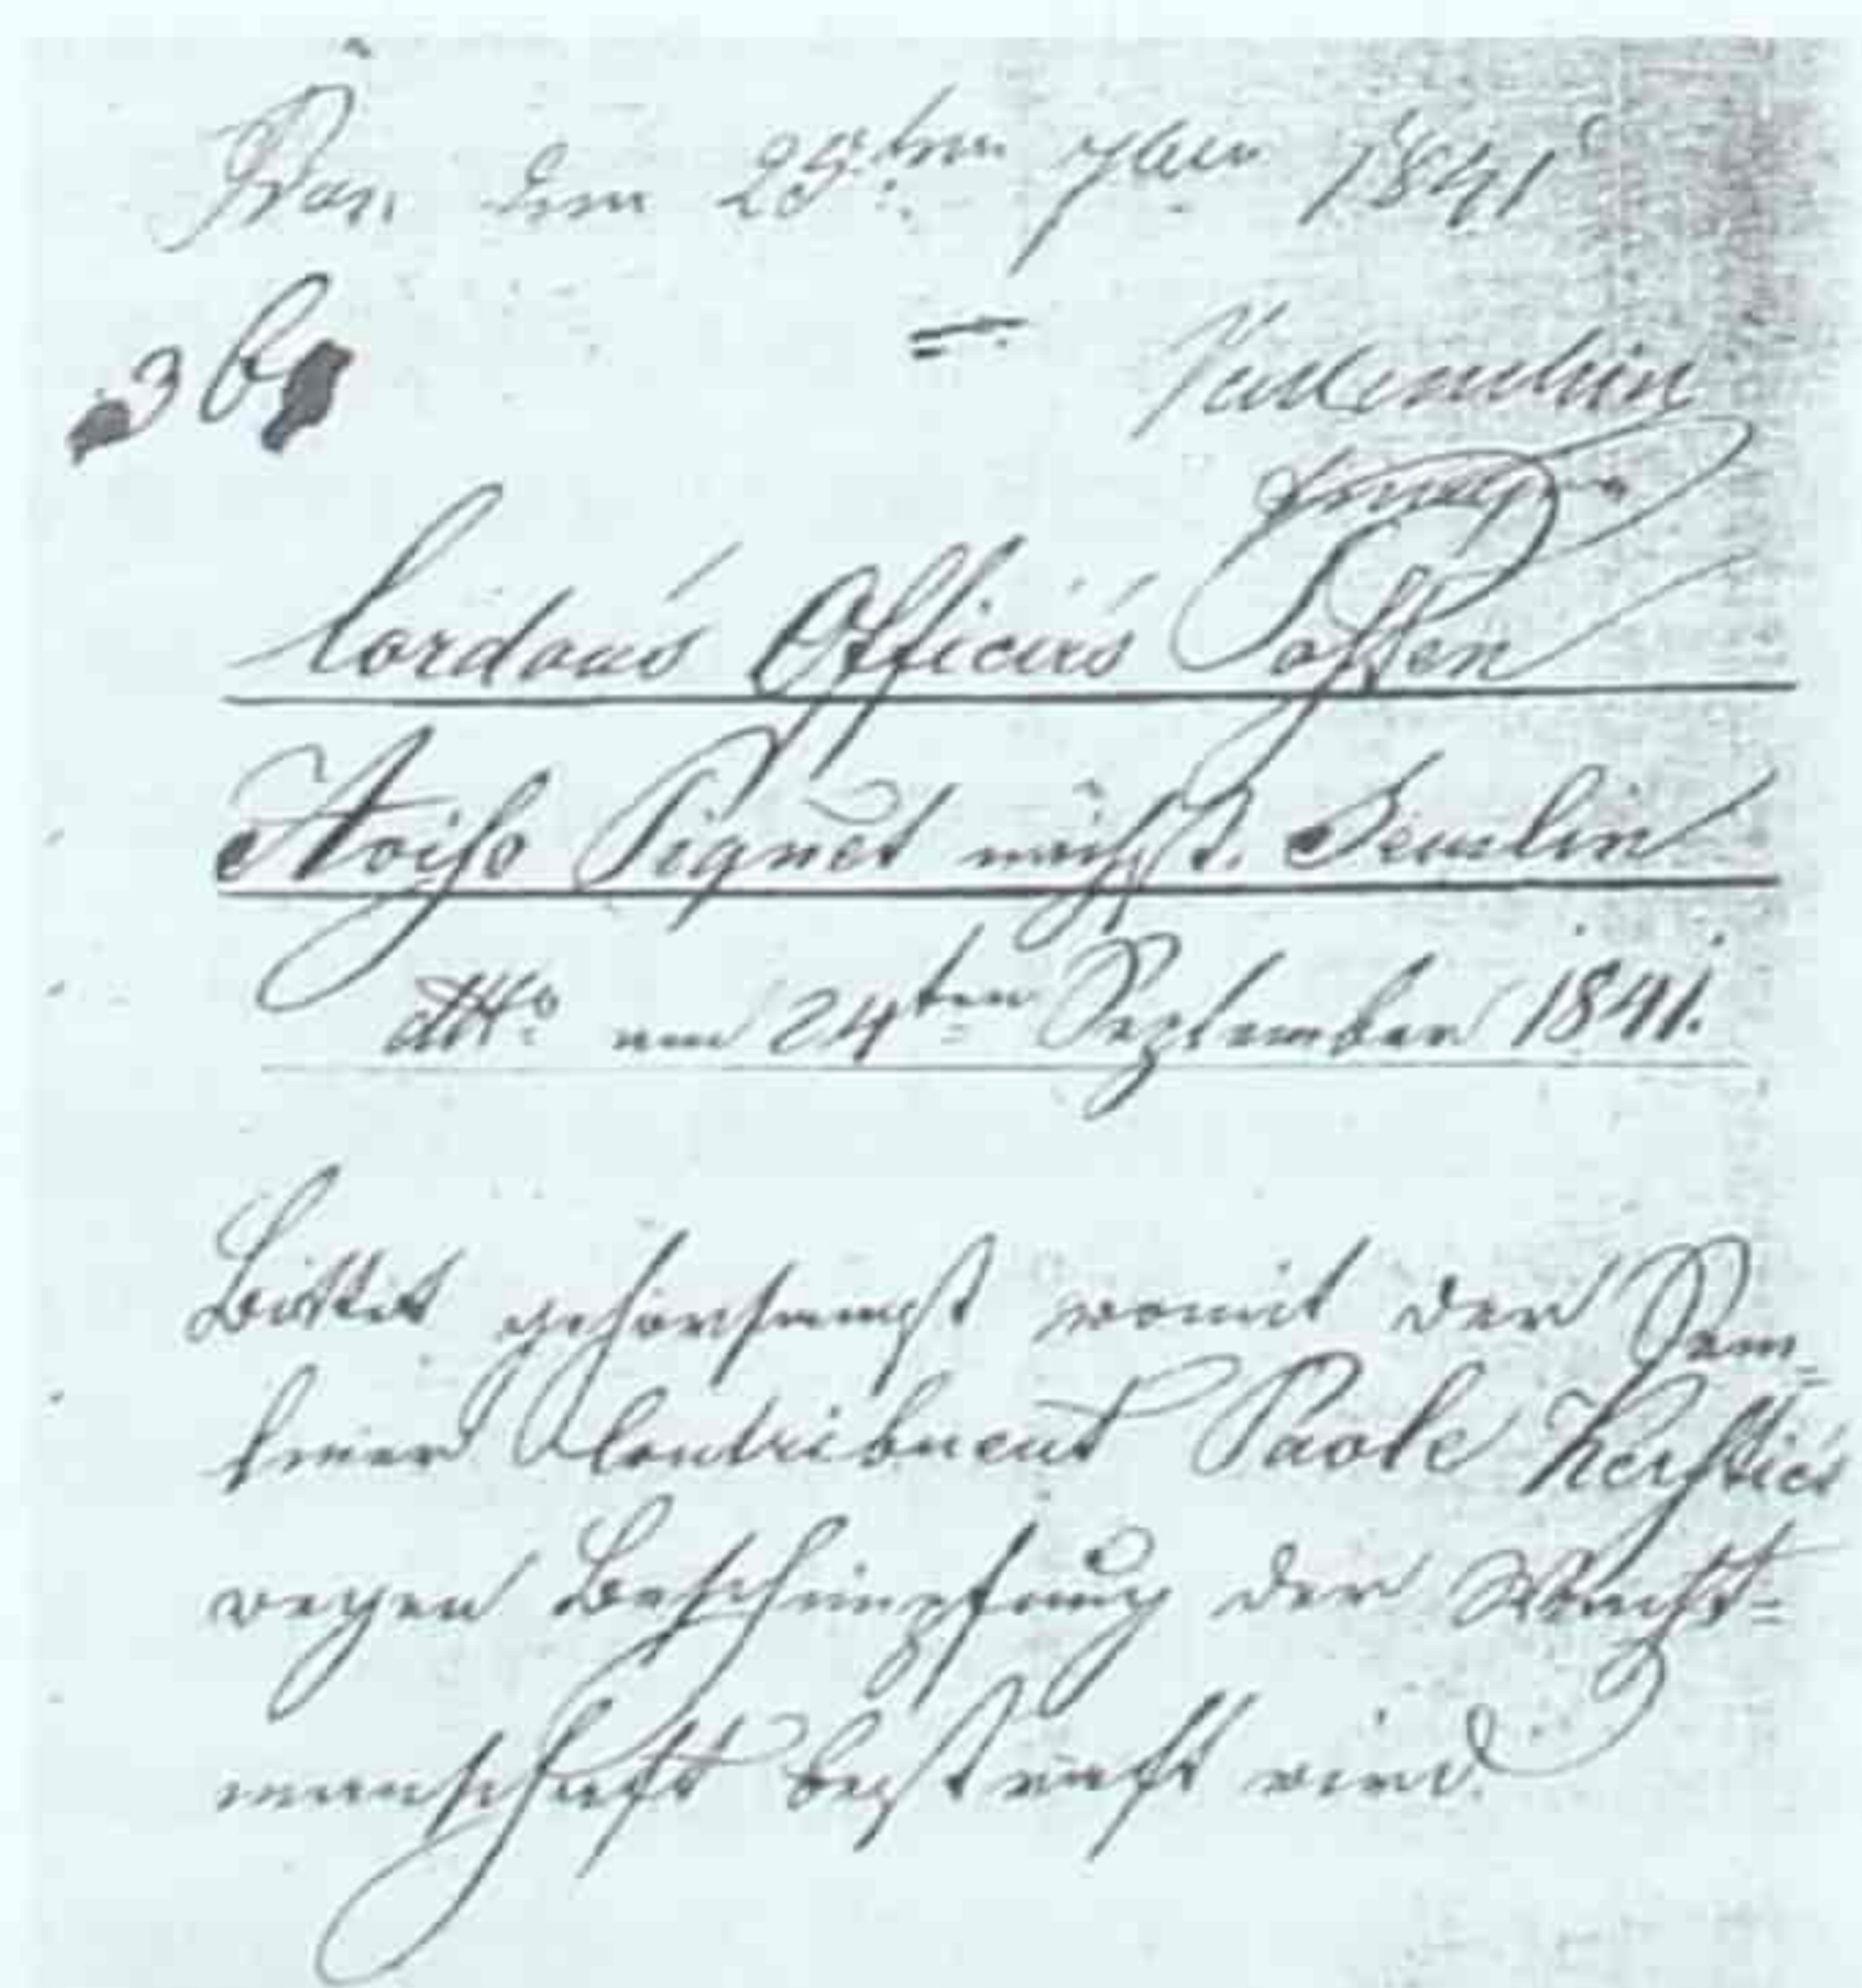 den 25ten 7ber 1841
36
Cordons Officiers Posten
Piquet nächst Semlin
dtto am 24ten September 1841.
Bittet gehorsamst womit der Sem-
liner Contribuent Paole
wegen Beschimpfung der Wacht-
manschaft bestraft wird.